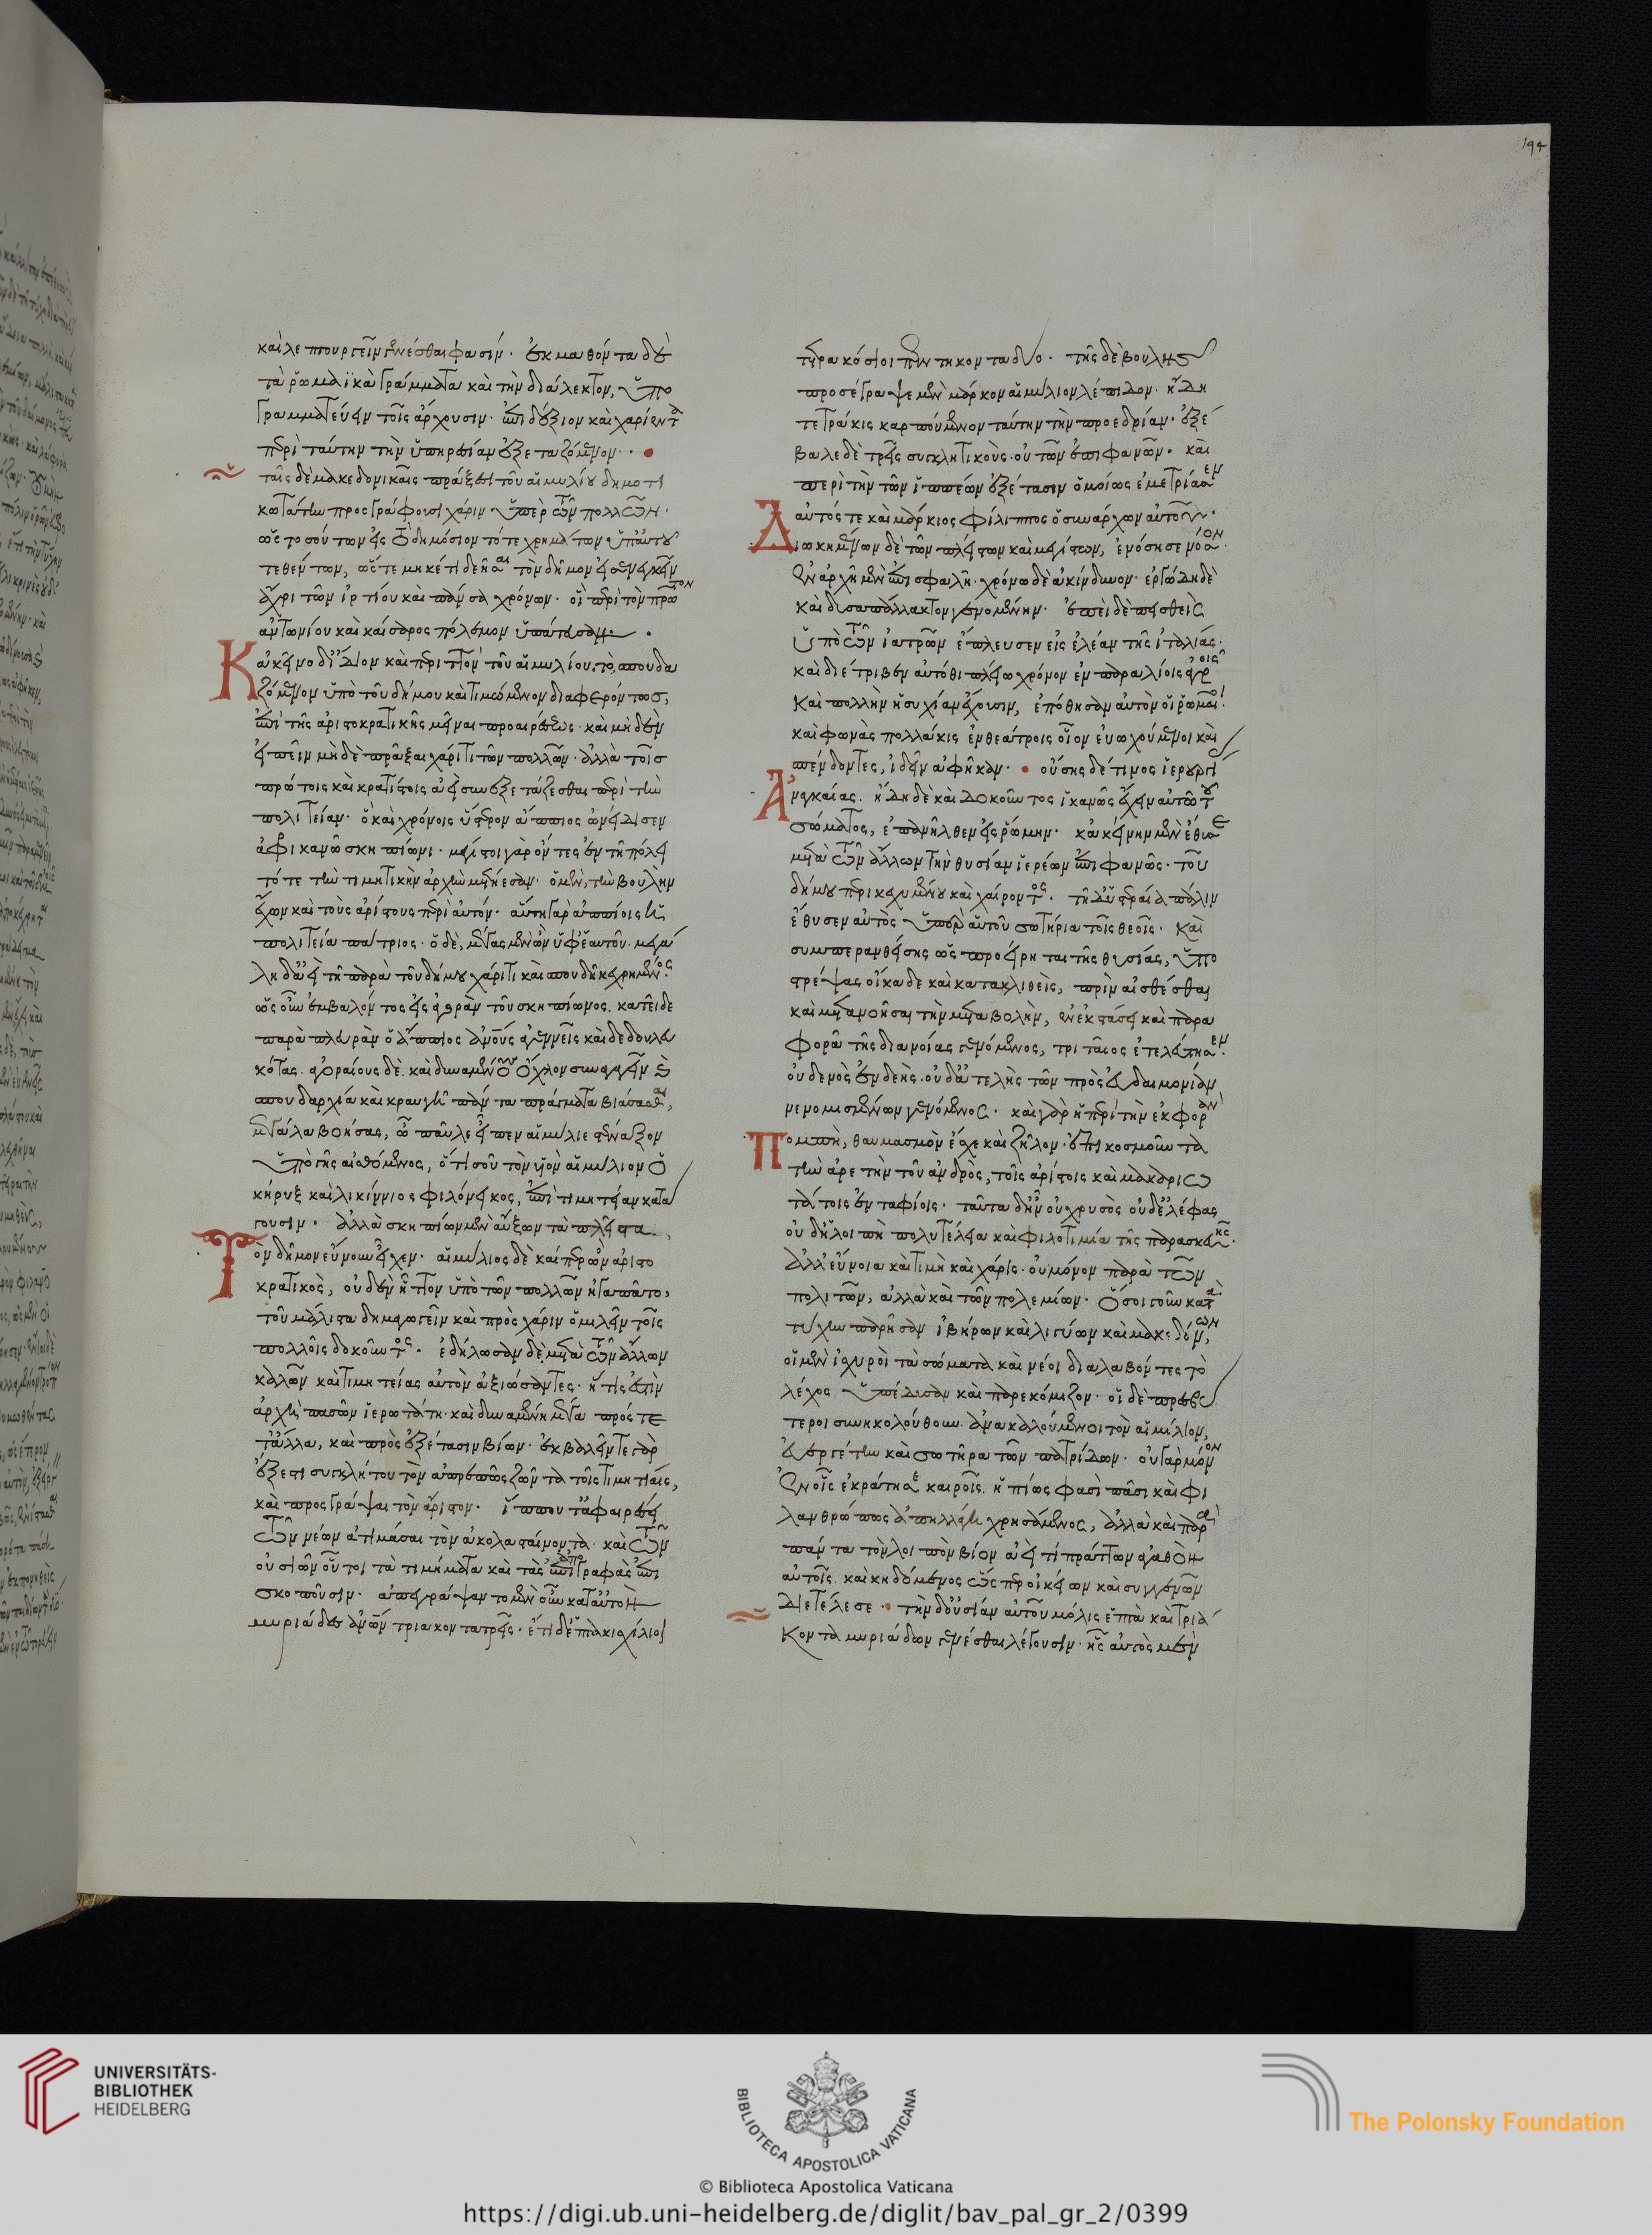 194
καὶ λεπτουργεῖν γενέσθαι φασίν. ἐκμαθόντα δὲ
τὰ ῥωμαϊκὰ γράμματα καὶ τὴν διάλεκτον, ὑπο
γραμματεύειν τοῖς ἄρχουσιν. ἐπιδέξιον καὶ χαρίεντα
περὶ ταύτην τὴν ὑπηρεσίαν ἐξεταζόμενον.
ταῖς δὲ μακεδονικαῖς πράξεσι τοῦ αἰμιλίου δημοτι
κωτάτην προσγράφουσι χάριν ὑπὲρ τῶν πολλῶν·
ὡς τοσούτων εἰς τὸ δημόσιον τότε χρημάτων ὑπ' αὐτοῦ
τεθέντων, ὥστε μηκέτι δεῆσαι τὸν δῆμον εἰσενεγκεῖν
ἄχρι τῶν ἱρτίου καὶ πάνσα χρόνων. οἳ περὶ τὸν πρῶτον
ἀντωνίου καὶ καίσαρος πόλεμον ὑπάτευσαν.
Κἀκεῖνο δ' ἴδιον καὶ περιττὸν τοῦ αἰμιλίου. τὸ, σπουδα
ζόμενον ὑπὸ τοῦ δήμου καὶ τιμώμενον διαφερόντως,
ἐπὶ τῆς ἀριστοκρατικῆς μεῖναι προαιρέσεως. καὶ μηδὲν
εἰπεῖν μὴ δὲ πρᾶξαι χάριτι τῶν πολλῶν. ἀλλὰ τοῖς
πρώτοις καὶ κρατίστοις ἀεὶ συνεξετάζεσθαι περὶ τὴν
πολιτείαν. ὃ καὶ χρόνοις ὕστερον ἄππιος ὠνείδισεν
ἀφρικανῶ σκηπίωνι. μέγιστοι γὰρ ὄντες ἐν τῇ πόλει
τότε τὴν τιμητικὴν ἀρχὴν μετῄεσαν. ὁ μὲν, τὴν βουλὴν
ἔχων καὶ τοὺς ἀρίστους περὶ αὐτόν. αὕτη γὰρ ἀππίοις ἡ
πολιτεία πάτριος. ὁ δὲ, μέγας μὲν ὢν ὑφ' ἑαυτοῦ. μεγά
λη δ' ἀεὶ τῇ παρὰ τοῦ δήμου χάριτι καὶ σπουδῇ κεχρημένος.
ὡς οὖν ἐμβαλόντος εἰς ἀγορὰν τοῦ σκηπίωνος. κατεῖδε
παρὰ πλευρὰν ὁ ἄππιος ἀνους ἀγεννεῖς καὶ δεδουλευ
κότας. ἀγοραίους δὲ. καὶ δυναμένους ὄχλον συναγαγεῖν καὶ
σπουδαρχία καὶ κραυγῇ πάντα πράγματα βιάσασθαι,
μέγα βοήσας, ὦ παῦλε εἶπεν αἰμίλιε στέναξον
ὑπὸ γῆς αἰσθόμενος, ὅτι σοῦ τὸν υἱὸν αἰμίλιον ὁ
κήρυξ καὶ λικίννιος φιλόνεικος, ἐπὶ τιμητείαν κατά
γουσιν. ἀλλὰ σκηπίων μὲν αὔξων τὰ πλεῖστα
Τὸν δῆμον εὔνουν εἶχεν. αἰμίλιος δὲ καίπερ ὢν ἀριστο
κρατικὸς, οὐδὲν ἧττον ὑπὸ τῶν πολλῶν ἠγαπᾶτο,
τοῦ μάλιστα δημαγωγεῖν καὶ πρὸς χάριν ὁμιλεῖν τοῖς
πολλοῖς δοκοῦντος. ἐδήλωσαν δὲ μετὰ τῶν ἄλλων
καλῶν καὶ τιμητείας αὐτὸν ἀξιώσαντες. ἥτις ἐστὶν
ἀρχὴ πασῶν ἱερωτάτη. καὶ δυναμένη μέγα πρός τε
τἆλλα, καὶ πρὸς ἐξέτασιν βίων. ἐκβαλεῖν τε γὰρ
ἔξεστι συγκλήτου τὸν ἀπρεπῶς ζῶντα τοῖς τιμηταῖς,
καὶ προσγράψαι τὸν ἄριστον. ἵππου τ' ἀφαιρέσει
τῶν νέων ἀτιμάσαι τὸν ἀκολασταίνοντα. καὶ τῶν
οὐσιῶν οὗτοι τὰ τιμήματα καὶ τὰς ἀπογραφὰς ἐπι
σκοποῦσιν. ἀπεγράψαντο μὲν οὖν κατ' αὐτὸν
μυριάδες ἀνων τριακοντατρεῖς. ἔτι δ' ἑπτακισχίλιοι
τετρακόσιοι πεντηκονταδύο. τῆς δὲ βουλῆς
προσέγραψε μὲν μάρκον αἰμίλιον λέπιδον. ἤδη
τετράκις καρπούμενον ταύτην τὴν προεδρίαν. ἐξέ
βαλε δὲ τρεῖς συγκλητικοὺς. οὐ τῶν ἐπιφανῶν. καὶ
περὶ τὴν τῶν ἱππέων ἐξέτασιν ὁμοίως ἐμετρίασεν
αὐτός τε καὶ μάρκιος φίλιππος ὁ συνάρχων αὐτοῦ.
Διωκημένων δὲ τῶν πλείστων καὶ μεγίστων, ἐνόσησε νόσον
ἐν ἀρχῇ μὲν ἐπισφαλῆ. χρόνω δὲ ἀκίνδυνον. ἐργώδη δὲ
καὶ δυσαπάλλακτον γενομένην. ἐπεὶ δὲ πεισθεὶς
ὑπὸ τῶν ἰατρῶν ἔπλευσεν εἰς ἐλέαν τῆς ἰταλίας.
καὶ διέτριβεν αὐτόθι πλείω χρόνον ἐν παραλίοις ἀγροῖς
καὶ πολλὴν ἡσυχίαν ἔχουσιν, ἐπόθησαν αὐτὸν οἱ ῥωμαῖοι.
καὶ φωνὰς πολλάκις ἐν θεάτροις οἷον εὐχόμενοι καὶ
σπένδοντες, ἰδεῖν ἀφῆκαν. οὔσης δέ τινος ἱερουργί
Ἀναγκαίας. ἤδη δὲ καὶ δοκοῦντος ἱκανῶς ἔχειν αὐτῶ τοῦ
σώματος, ἐπανῆλθεν εἰς ῥώμην. κἀκείνην μὲν ἔθυσε
μετὰ τῶν ἄλλων τὴν θυσίαν ἱερέων ἐπιφανῶς. τοῦ
δήμου περικεχυμένου καὶ χαίροντος. τῇ δ' ὑστεραία πάλιν
ἔθυσεν αὐτὸς ὑπὲρ αὑτοῦ σωτήρια τοῖς θεοῖς. καὶ
συμπερανθείσης ὡς προείρηται τῆς θυσίας, ὑπο
στρέψας οἴκαδε καὶ κατακλιθεὶς, πρὶν αἰσθέσθαι
καὶ μετανοῆσαι τὴν μεταβολὴν, ἐν ἐκστάσει καὶ παρα
φορᾶ τῆς διανοίας γενόμενος, τριταῖος ἐτελεύτησεν.
οὐδενὸς ἐνδεὴς. οὐδ' ἀτελὴς τῶν πρὸς εὐδαιμονίαν
νενομισμένων γενόμενος. καὶ γὰρ ἡ περὶ τὴν ἐκφορὰν
Πομπὴ, θαυμασμὸν ἔσχε καὶ ζῆλον. ἐπικοσμοῦντα
τὴν ἀρετὴν τοῦ ἀνδρὸς, τοῖς ἀρίστοις καὶ μακαριω
τάτοις ἐνταφίοις. ταῦτα δ' ἦν οὐ χρυσὸς οὐδ' ἐλέφας
οὐδ' ἡ λοιπὴ πολυτέλεια καὶ φιλοτιμία τῆς παρασκευῆς.
ἀλλ' εὔνοια καὶ τιμὴ καὶ χάρις. οὐ μόνον παρὰ τῶν
πολιτῶν, ἀλλὰ καὶ τῶν πολεμίων. ὅσοι γοῦν κατὰ
τύχην παρῆσαν ἰβήρων καὶ λιγύων καὶ μακεδόνων,
οἱ μὲν ἰσχυροὶ τὰ σώματα καὶ νέοι διαλαβόντες τὸ
λέχος ὑπέδυσαν καὶ παρεκόμιζον. οἱ δὲ πρεσβύ
τεροι συνηκολούθουν. ἀνακαλούμενοι τὸν αἰμίλιον,
εὐεργέτην καὶ σωτῆρα τῶν πατρίδων. οὐ γὰρ μόνον
ἐν οἷς ἐκράτησε καιροῖς. ἠπίως φασὶ πᾶσι καὶ φι
λανθρώπως ἀπηλλάγη χρησάμενος, ἀλλὰ καὶ παρὰ
πάντα τὸν λοιπὸν βίον ἀεί τι πράττων ἀγαθὸν
αὐτοῖς. καὶ κηδόμενος ὥσπερ οἰκείων καὶ συγγενῶν
διετέλεσε. τὴν δ' οὐσίαν αὐτοῦ μόλις ἑπτὰ καὶ τριά
κοντα μυριάδων γενέσθαι λέγουσιν. ἧς αὐτὸς μὲν
UNIVERSITÄTS-
BIBLIOTHEK
HEIDELBERG
BIBLIOTECA APOSTOLICA VATICANA
The Polonsky Foundation
© Biblioteca Apostolica Vaticana
https://digi.ub.uni-heidelberg.de/diglit/bav_pal_gr_2/0399